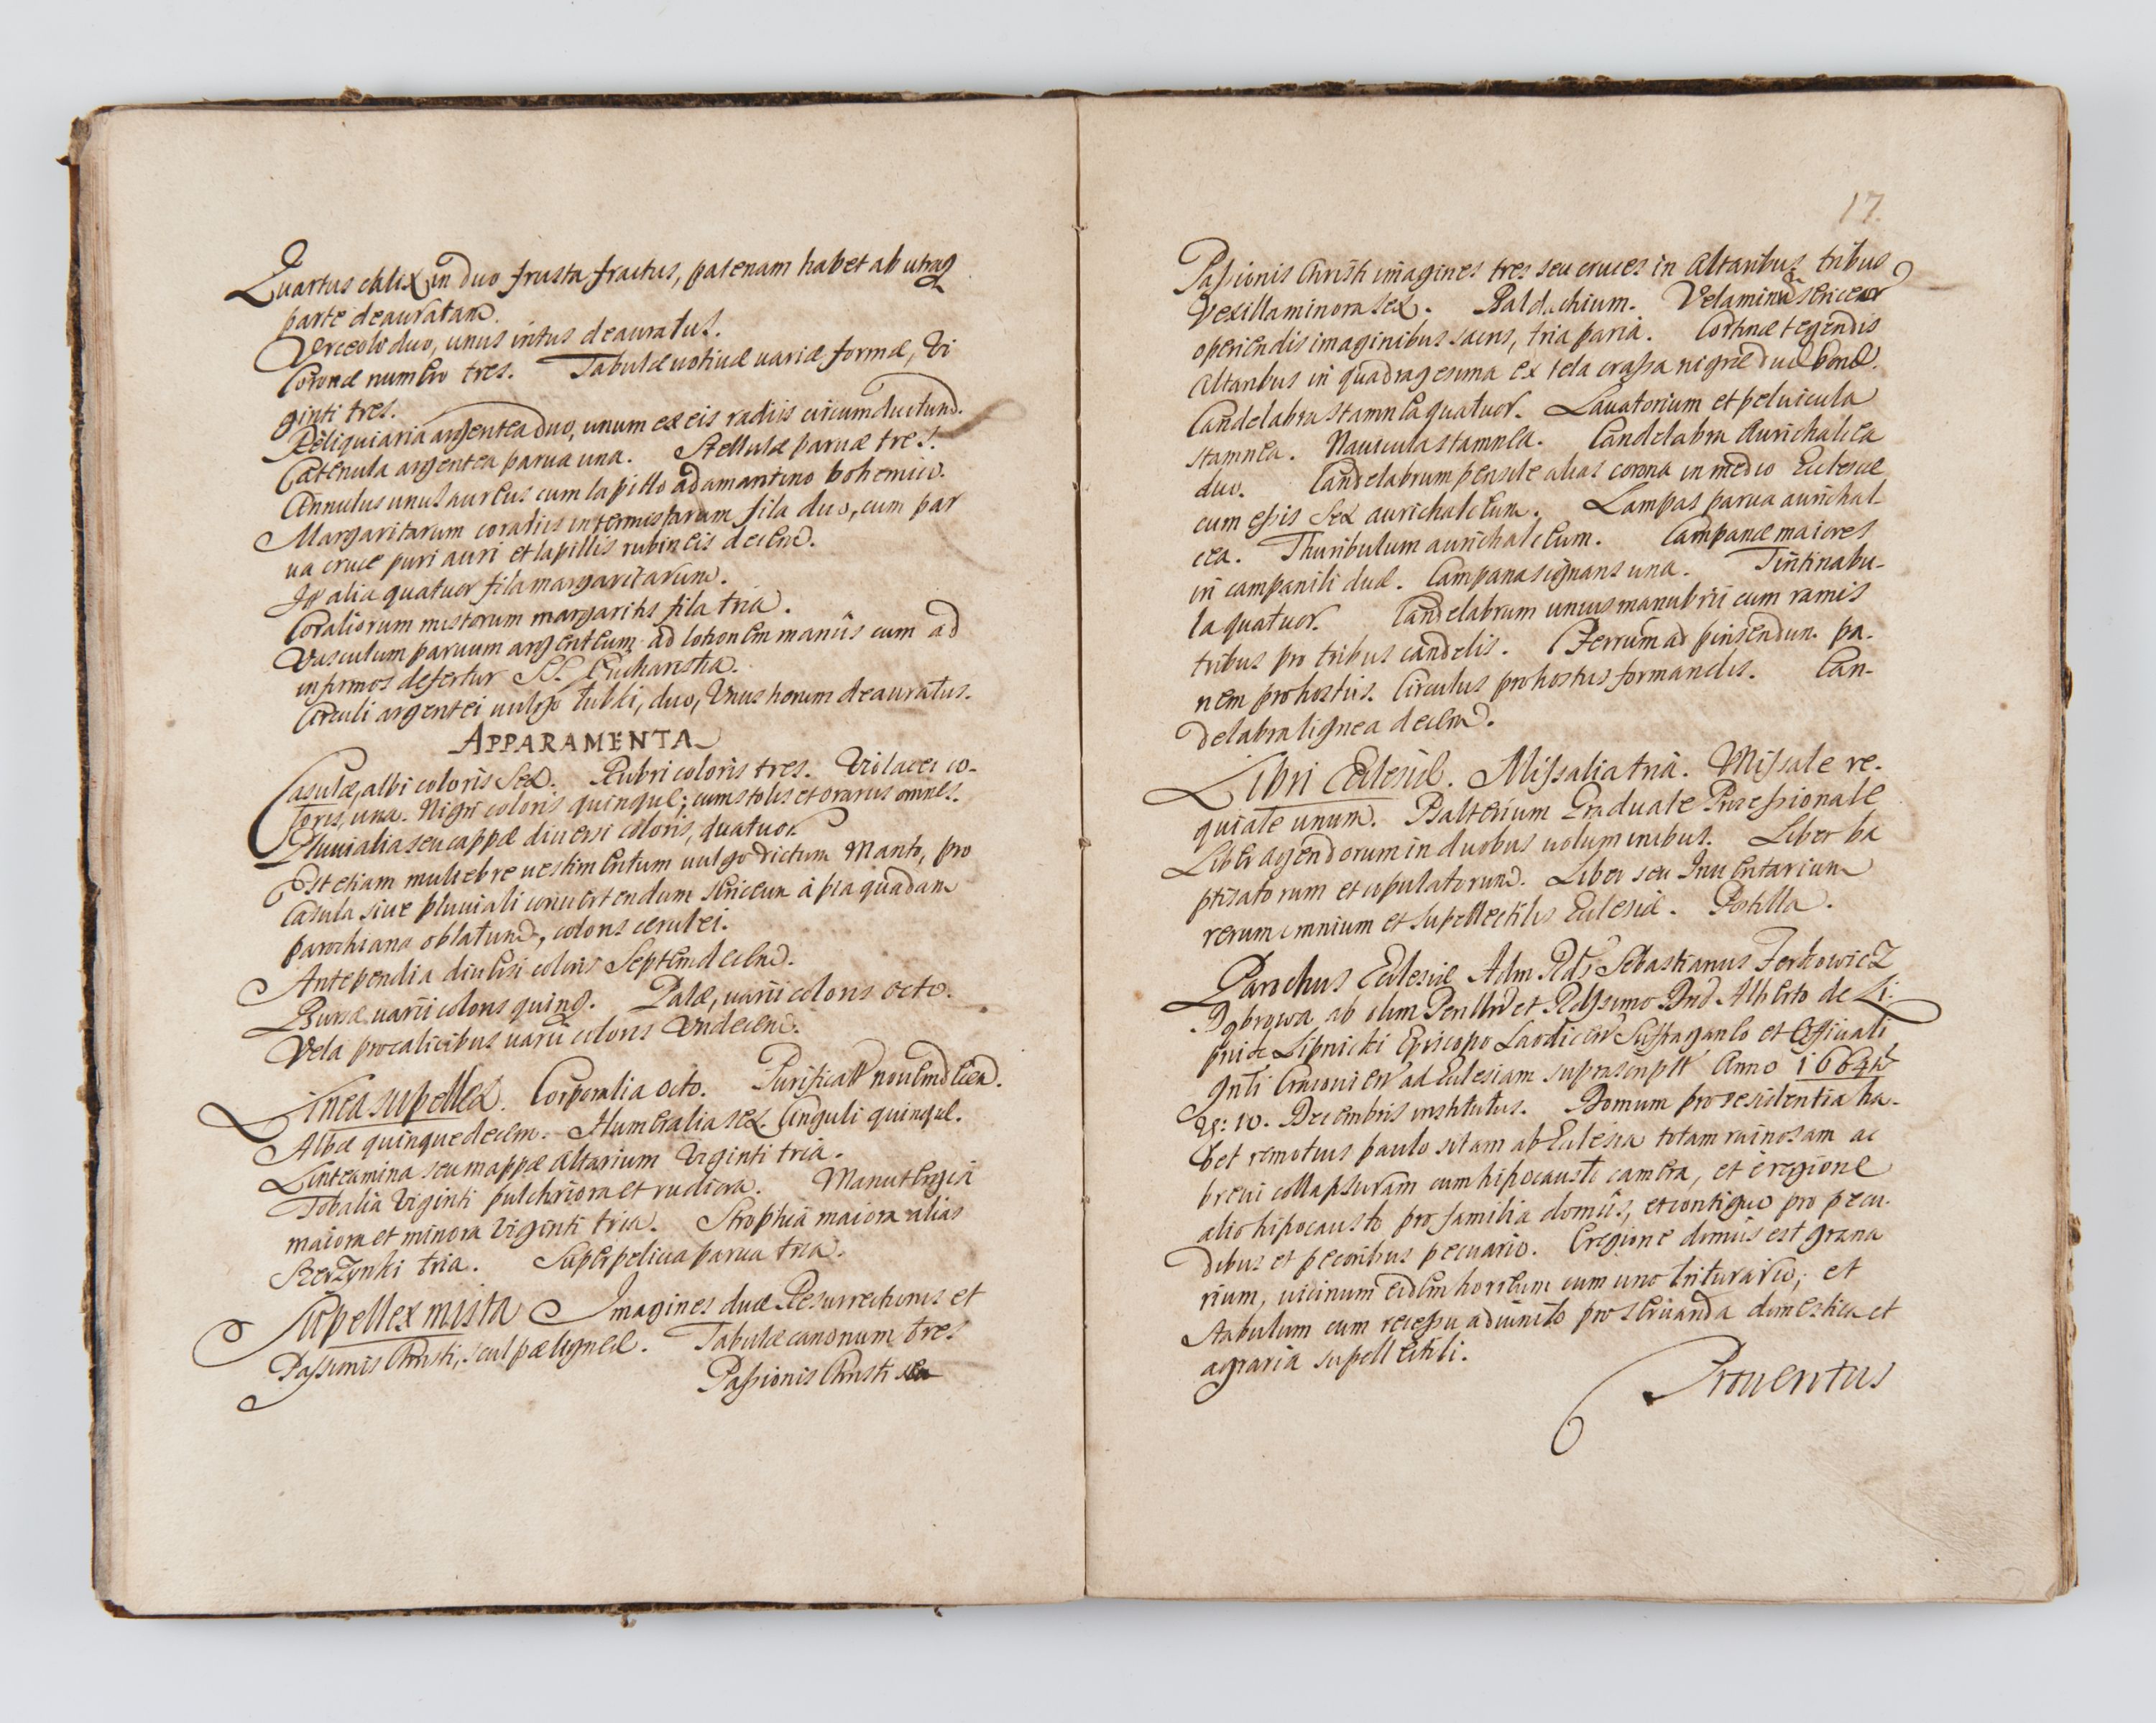 Quartus calix in duo frusta fractus, patenam habet ab utraq
parte deauratam.
Urceoli duo, unus intus deauratus.
Coronæ numero tres. Tabulæ uotiuæ uariæ formæ, Vi
ginti tres.
Reliquiaria argentea duo, unum ex eis radiis circumductum.
Catenula argentea parua una. Stellulæ paruæ tres.
Annulus unus aureus cum lapillo adamantino bohemico.
Margaritarum coraliis intermistarum fila duo, cum par
ua cruce puri auri et lapillis rubineis decem.
It alia quatuor fila margaritarum.
Coraliorum mistorum margaritis fila tria.
Vasculum paruum argenteum ad lotionem manus cum ad
infirmos defertur SS. Eucharistia.
Circuli argentei uulgo tulki, duo, Unus horum deauratus.
APPARAMENTA
Casulæ, albi coloris Sex. Rubri coloris tres. Violacei co-
loris, una. Nigri coloris quinque; cum stolis et orariis omnes.
Pluuialia seu cappæ diuersi coloris, quatuor.
Est etiam muliebre uestimentum uulgo dictum Manto, pro
Casula siue pluuiali conuertendum sericeum à pia quadam
parochiana oblatum, coloris cerulei.
Antependia diuersi coloris Septemdecem.
Bursæ uarii coloris quinq. Palæ, uarii coloris octo.
Vela pro calicibus uarii coloris Undecem.
Linea supellex. Corporalia octo. Purificatt nouemdecem.
Albæ quinquedecem. Humeralia sex. Cinguli quinque.
Linteamina seu mappæ Altarium Viginti tria.
Tobalia Viginti pulchriora et rudiora. Manutergia
maiora et minora Viginti tria. Strophia maiora alias
Rerzynki tria. Superpelicia parua tria.
Supellex mista Imagines duæ Resurrectionis et
Passionis Christi, sculpæ ligneæ. Tabulæ canonum tres
Passionis Christi
17.
Passionis Christi imagines tres seu cruces in Altaribus tribus
Vexilla minora sex. Baldachium. Velamina sericea
operiendis imaginibus sacris, tria paria. Cortinæ tegendis
Altaribus in quadragesima ex tela crassa nigræ duæ bonæ.
Candelabra stamnea quatuor. Lauatorium et peluicula
stamnea. Nauicula stamnea. Candelabra Aurichalcea
duo. Candelabrum pensile alias corona in medio Ecclesiæ
cum epis Sex aurichalceum. Lampas parua aurichal-
cea. Thuribulum aurichalceum. Campanæ maiores
in campanili duæ. Campana signans una. Tintinabu-
la quatuor. Candelabrum unius manubrii cum ramis
tribus pro tribus candelis. Ferrum ad pinsendum pa-
nem pro hostiis. Circulus pro hostiis formandis. Can-
delabra lignea decem.
Libri Ecclesiæ. Missalia tria. Missale re-
quiale unum. Psalterium Graduale Processionale
Liber agendorum in duobus uoluminibus. Liber ba
ptisatorum et copulatorum. Liber seu Inuentarium
rerum omnium et supellectilis Ecclesiæ. Postilla.
Parochus Ecclesiæ Adm Rd, Sebastianus Ferkowicz
Dąbrowa ab olim Perillri et Rdssimo Dnd Alberto de Li-
pnic Lipnicki Episcopo Laodicen Suffraganeo et Officiali
Gnli Cracouien ad Ecclesiam suprascriptt Anno 1664to
10. Decembris institutus. Domum pro residentia ha-
bet remotius paulo sitam ab Ecclesia totam ruinosam ac
breui collapsuram cum hipocausto camera, et èregione
alio hipocausto pro familia domus, et contiguo pro pecu-
dibus et pecoribus pecuario. Eregione domus est grana
rium, uicinum eidem horreum cum uno triturario; et
stabulum cum recessu adiuncto pro seruanda domestica et
agraria supellectili.
Prouentus